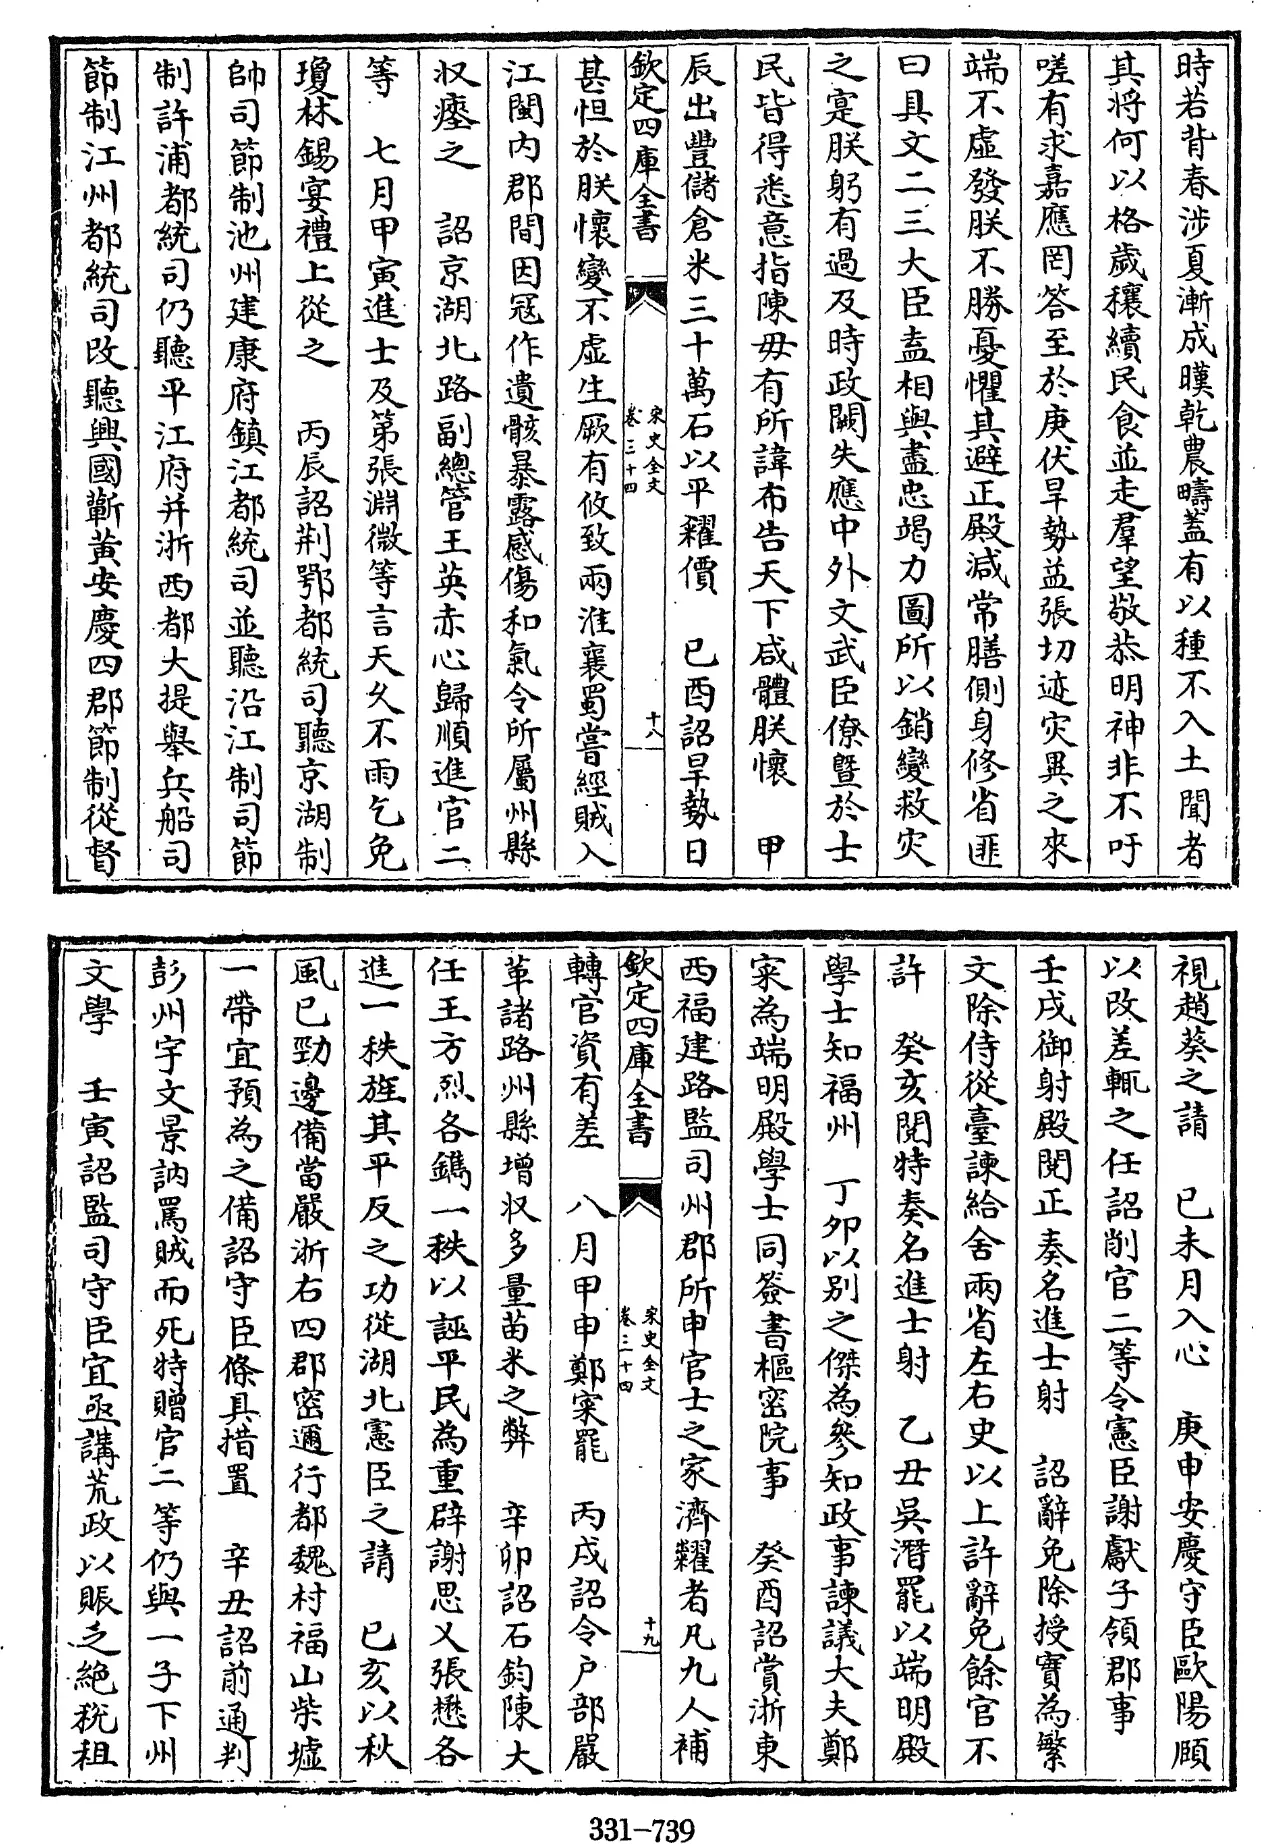 時若背春涉夏漸成暵乾農疇蓋有以種不入土聞者
其将何以格歲穰續民食並走羣望敬恭明神非不吁
嗟有求嘉應罔答至於庚伏旱勢益張切迹灾異之來
端不虛發朕不勝憂懼其避正殿減常膳側身修省匪
曰具文二三大臣盍相與盡忠竭力圖所以銷變救灾
之寔朕躬有過及時政闕失應中外文武臣僚曁於士
民皆得悉意指陳毋有所諱布告天下咸體朕懷　甲
辰出豐儲倉米三十萬石以平糴價　已酉詔旱勢日
欽定四庫全書　宋史全文卷三十四　十八
甚怛於朕懷變不虛生厥有攸致兩淮襄蜀嘗經賊入
江閩内郡間因冦作遺骸暴露感傷和氣令所屬州縣
収瘞之　詔京湖北路副總管王英赤心歸順進官二
等　七月甲寅進士及第張淵微等言天久不雨乞免
瓊林錫宴禮上從之　丙辰詔荆鄂都統司聽京湖制
帥司節制池州建康府鎮江都統司並聽沿江制司節
制許浦都統司仍聽平江府并浙西都大提舉兵船司
節制江州都統司改聽興國蘄黄安慶四郡節制從督
視趙葵之請　已未月入心　庚申安慶守臣歐陽頤
以改差輒之任詔削官二等令憲臣謝獻子領郡事
壬戌御射殿閱正奏名進士射　詔辭免除授實為繁
文除侍從臺諫給舍兩省左右史以上許辭免餘官不
許　癸亥閱特奏名進士射　乙丑吳潛罷以端明殿
學士知福州　丁卯以别之傑為參知政事諫議大夫鄭
寀為端明殿學士同簽書樞密院事　癸酉詔賞浙東
西福建路監司州郡所申官士之家濟糶者凡九人補
欽定四庫全書　宋史全文卷三十四　十九
轉官資有差　八月甲申鄭寀罷　丙戌詔令户部嚴
革諸路州縣増收多量苗米之弊　辛卯詔石鈞陳大
任王方烈各鐫一秩以誣平民為重辟謝思义張懋各
進一秩旌其平反之功從湖北憲臣之請　已亥以秋
風已勁邊備當嚴浙右四郡密邇行都魏村福山柴墟
一帶宜預為之備詔守臣條具措置　辛丑詔前通判
彭州宇文景訥罵賊而死特贈官二等仍與一子下州
文學　壬寅詔監司守臣宜亟講荒政以賑乏絶稅租
331-739